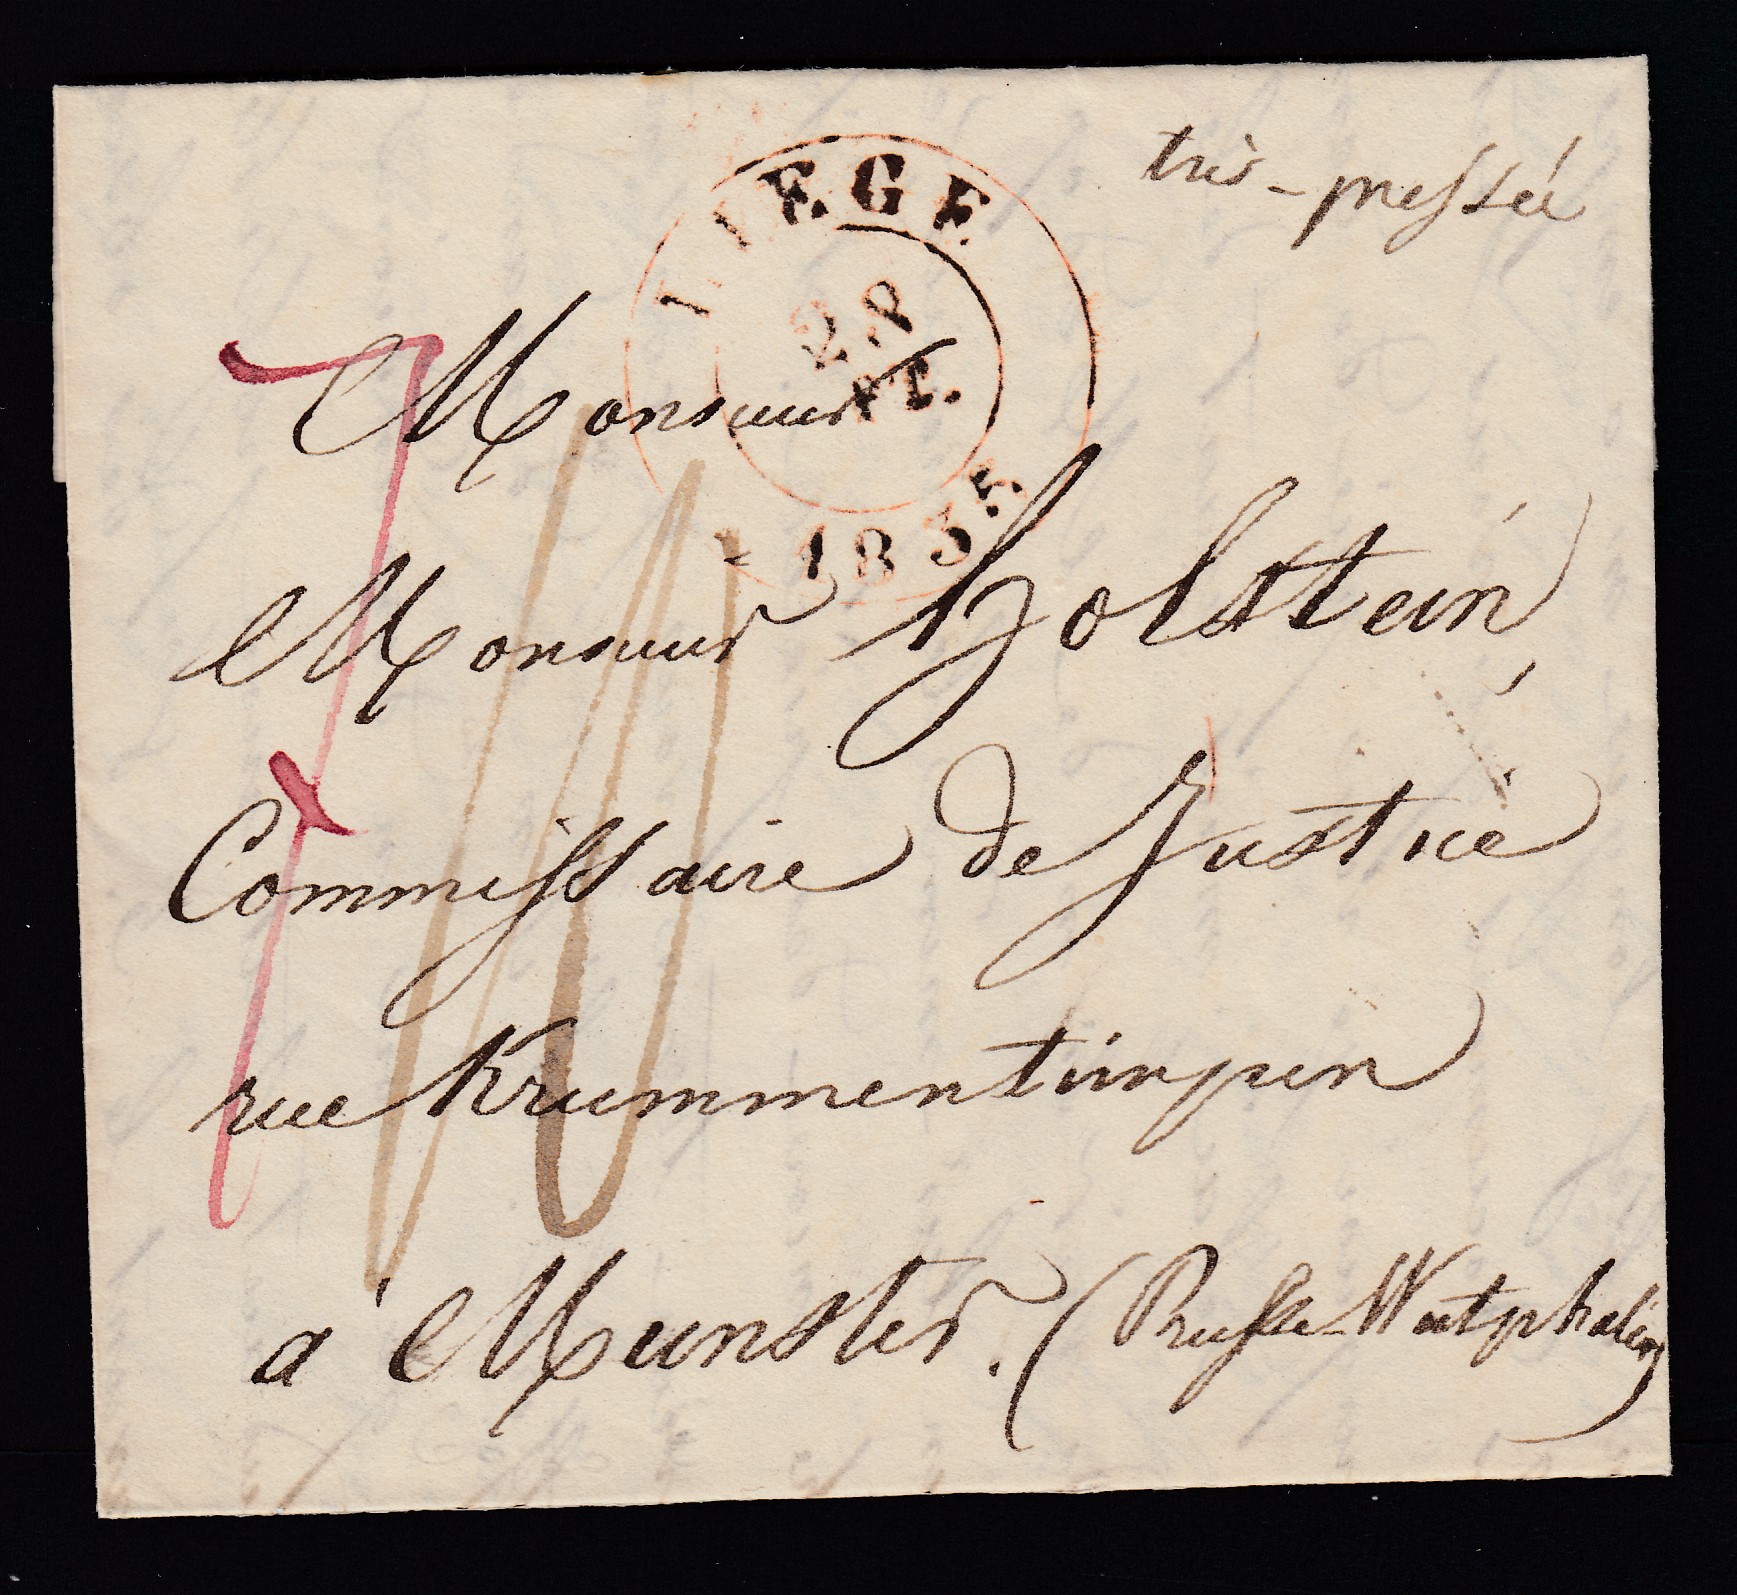 très-pressée
LIEGE
28
1835
Monsieur
Monsieur Holstein,
Commissaire de Justice
rue Krummentimpen
à Munster. (Prusse-Westphalien)